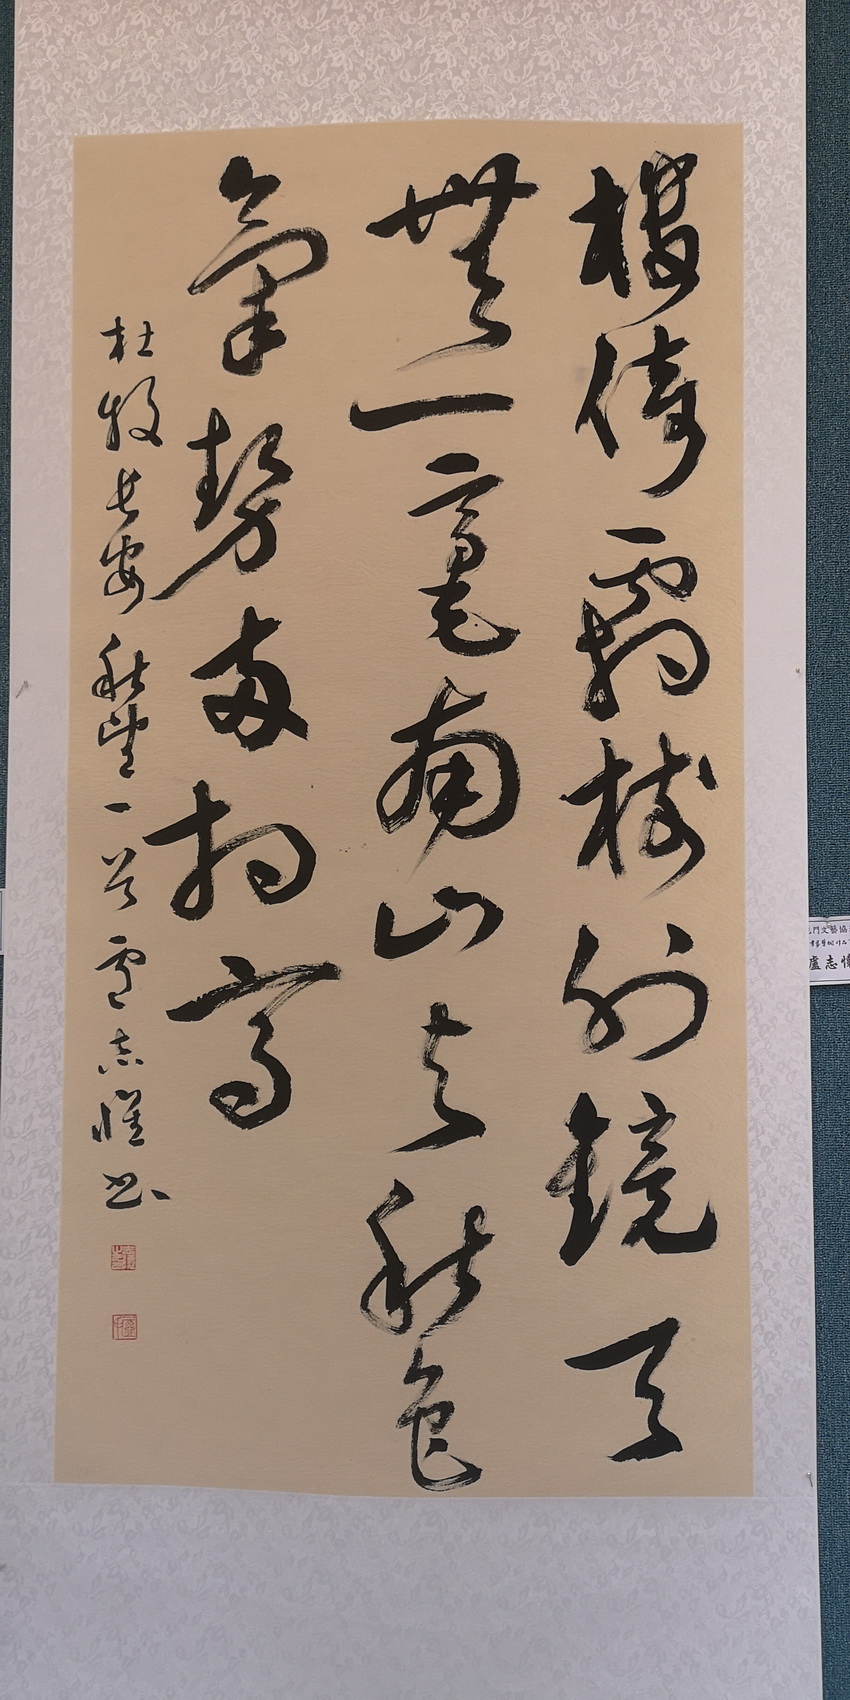 樓倚霜樹外鏡天
無一毫南山與秋色
氣勢兩相高
杜牧長安秋望一首盧志書
門文藝協
盧志